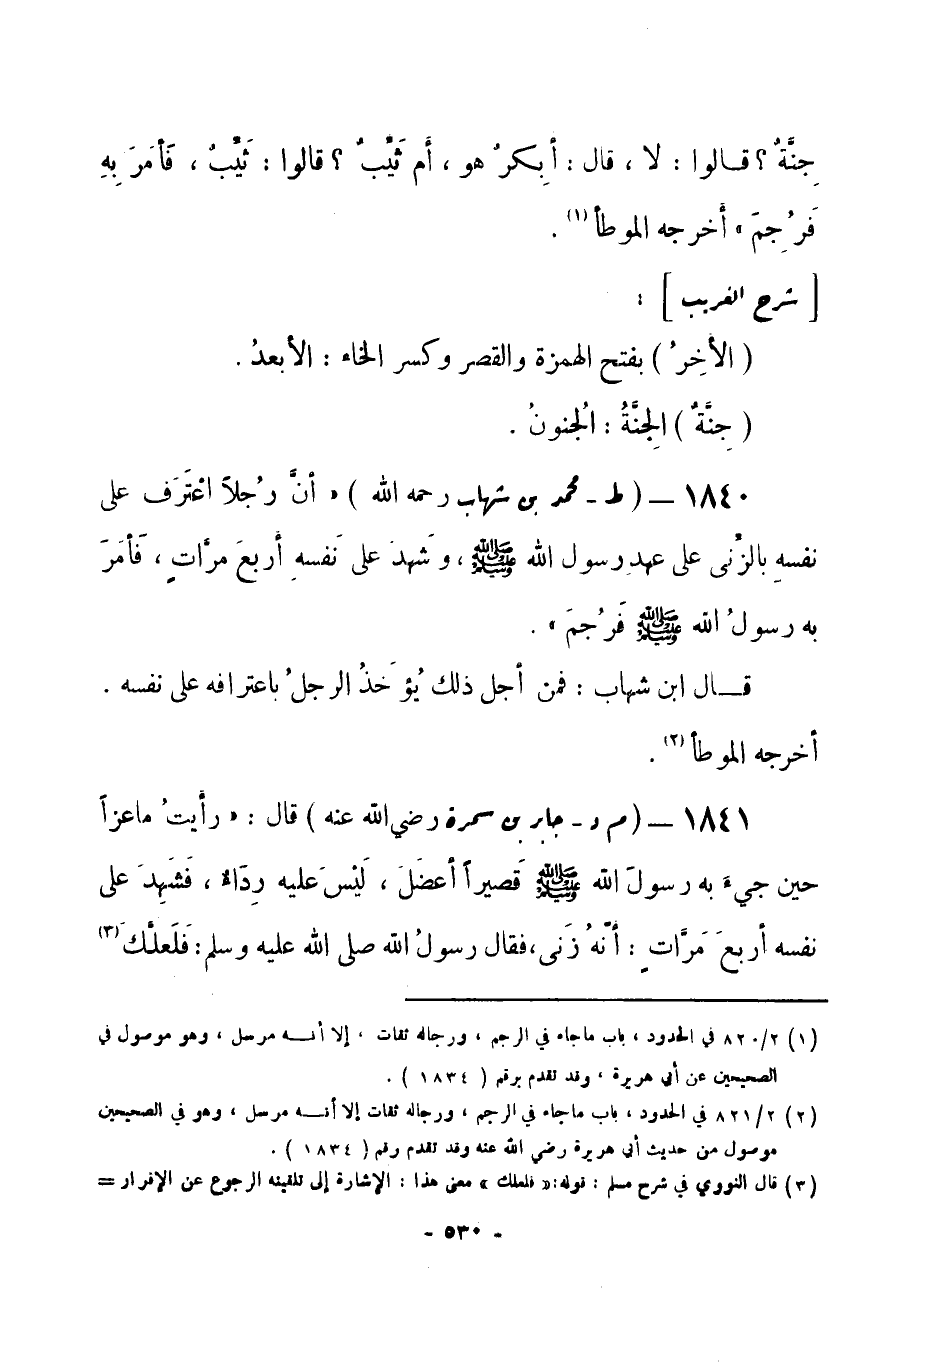 جِنَّةٌ ؟ قـالوا : لا ، قال : أَبِكرٌ هو ، أم ثَيِّبٌ ؟ قالوا : ثَيِّبٌ ، فَأَمَرَ بِهِ
فَرُجِمَ » أخرجه الموطأ (١) .
[ شرح الغريب ] :
( الأَخِرُ ) بفتح الهمزة والقصر وكسر الخاء : الأبعدُ .
( جِنَّةٌ ) الجِنَّةُ : الجُنونُ .
١٨٤٠ — ( ط - محمد بن شهاب رحمه الله ) « أنَّ رُجلاً اعْتَرَف على
نفسهِ بالزُّنى على عهدِ رسول الله ﷺ ، وَشهدَ على نَفسهِ أَربعَ مرَّاتٍ ، فَأَمَرَ
به رسولُ الله ﷺ فَرُجمَ » .
قــال ابن شهاب : فمن أجل ذلك يُؤَخذُ الرجلُ باعترافه على نفسه .
أخرجه الموطأ (٢) .
١٨٤١ — ( م د - جابر بن سمرة رضي الله عنه ) قال : « رأيتُ ماعزاً
حين جيءَ به رسولَ الله ﷺ قَصيراً أَعضَلَ ، لَيْسَ عَليه رِدَاءٌ ، فَشَهِدَ على
نفسه أَربعَ مَرَّاتٍ : أنَّهُ زَنى ، فقال رسولُ الله صلى الله عليه وسلم : فَلَعلَّكَ (٣)
(١) ٨٢٠/٢ في الحدود ، باب ماجاء في الرجم ، ورجاله ثقات ، إلا أنــه مرسل ، وهو موصول في
الصحيحين عن أبي هريرة ، وقد تقدم برقم ( ١٨٣٤ ) .
(٢) ٨٢١/٢ في الحدود ، باب ماجاء في الرجم ، ورجاله ثقات إلا أنــه مرسل ، وهو في الصحيحين
موصول من حديث أبي هريرة رضي الله عنه وقد تقدم رقم ( ١٨٣٤ ) .
(٣) قال النووي في شرح مسلم : قوله : « فلعلك » معنى هذا : الإشارة إلى تلقينه الرجوع عن الإقرار =
- ٥٣٠ -